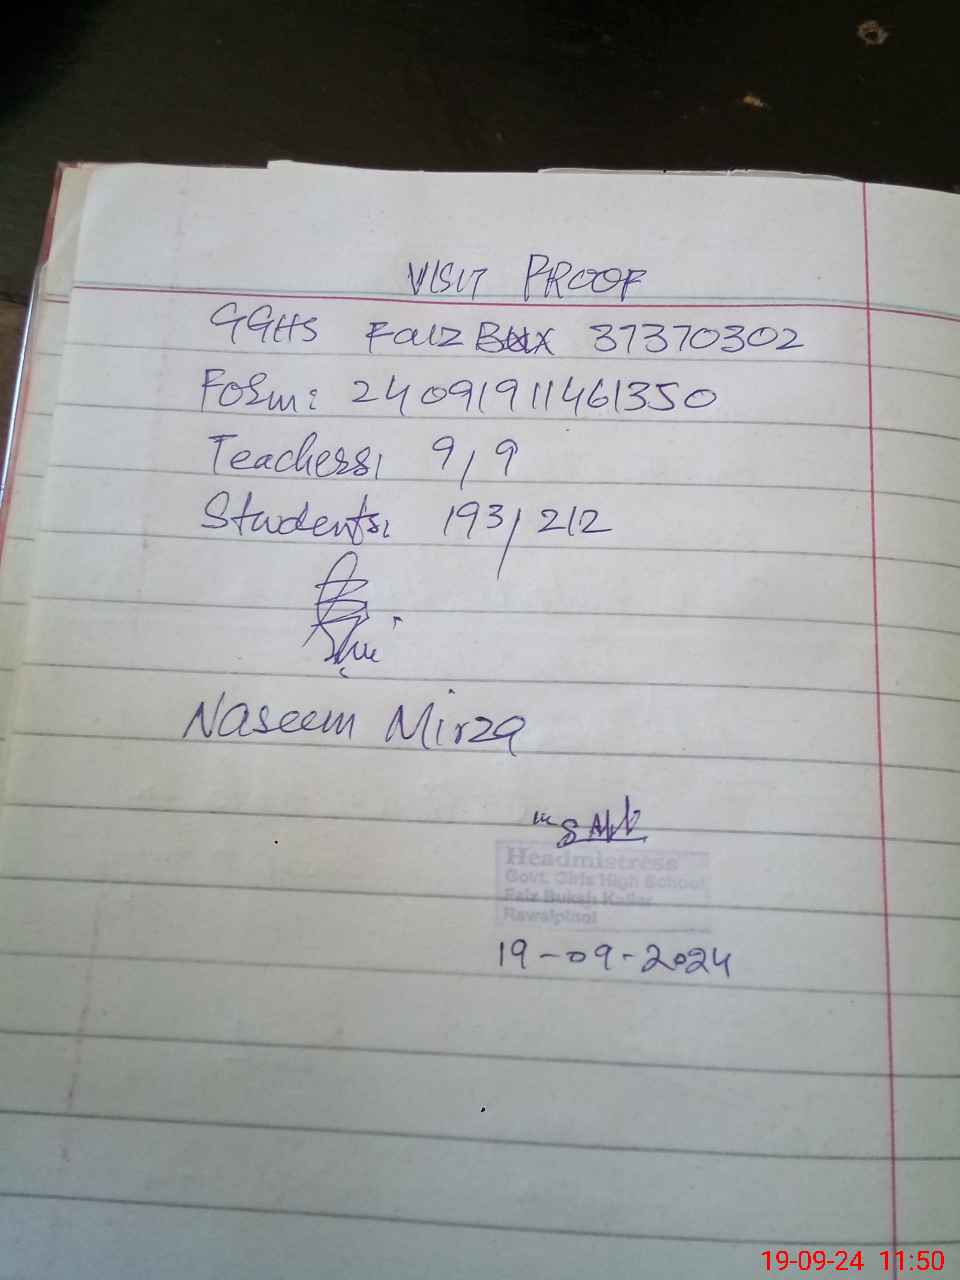 VISIT PROOF
GGHS Faiz Bux 37370302
Form: 24091911461350
Teachers: 9/9
Students: 193/212
Naseem Mirza
Headmistress
Govt. Girls High School
Faiz Buksh Kallar
Rawalpindi
19-09-2024
19-09-24 11:50